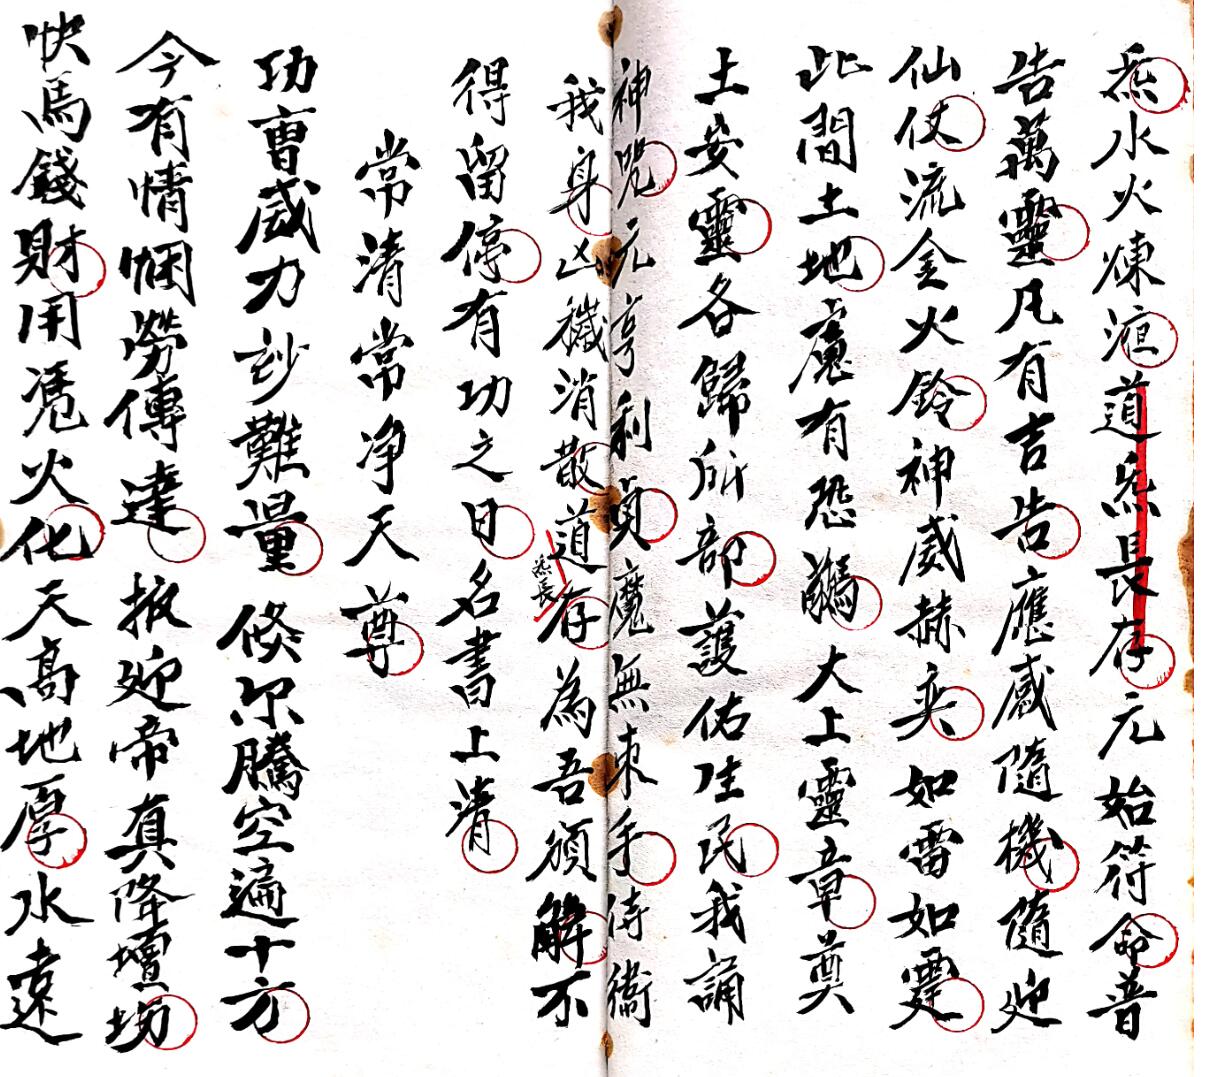 炁水火煉洹道炁長存元始符命普
告萬靈凡有吉告應感隨機隨迎
仙仗流金火鈴神威赫奕如雷如霆
此間土地魔有恐驚大上靈章奠
土安靈各歸所部護佑生民我誦
神咒元亨利貞魔無束手侍衞
我身凶穢消散道存為吾頒解不
炁長
得留停有功之日名書上清
常清常净天尊
功曹威力妙難量倐尔騰空遍十方
今有情悃勞傳達披迎帝真降壇塲
快馬錢財用凴火化天高地厚水遠